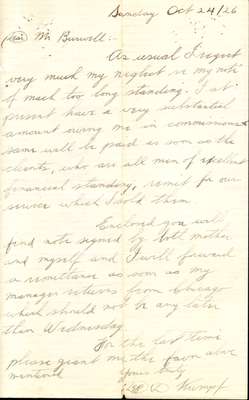 Sunday Oct 24/26
Dear Mr. Burwell:-
As usual I regret
very much my neglect in my note
of much too long standing. I at
present have a very substantial
amount owing me in commissions
same will be paid as soon as the
clients, who are all men of excellent
financial standing, remit for our
service which I sold them.
Enclosed you will
find note signed by both mother
and myself and I will forward
a remittance as soon as my
manager returns from Chicago
which should not be any later
than Wednesday.
For the last time
please grant me the favor above
mentioned
Yours truly